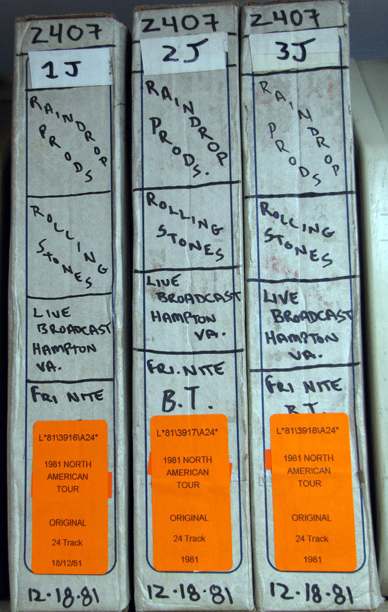 2407
1J
RAINDROP
PRODS
ROLLING
STONES
LIVE
BROADCAST
HAMPTON
VA.
FRI NITE
L*81\3916\A24*
1981 NORTH
AMERICAN
TOUR
ORIGINAL
24 Track
18/12/81
12.18.81
2407
2J
RAINDROP
PRODS.
ROLLING
STONES
LIVE
BROADCAST
HAMPTON
VA.
FRI. NITE
B.T.
L*81\3917\A24*
1981 NORTH
AMERICAN
TOUR
ORIGINAL
24 Track
1981
12-18-81
2407
3J
RAINDROP
PRODS
ROLLING
STONES
LIVE
BROADCAST
HAMPTON
VA.
FRI NITE
B.T.
L*81\3918\A24*
1981 NORTH
AMERICAN
TOUR
ORIGINAL
24 Track
1981
12-18-81